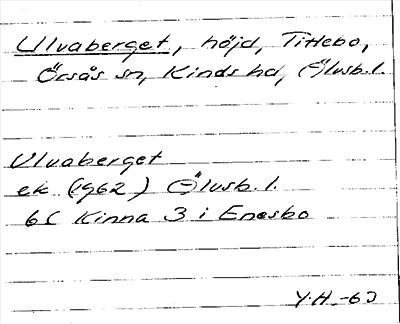 Ulvaberget, höjd, Tittebo,
Örsås sn, Kinds hd, Älvsb. l.
Ulvaberget
ek (1962) Älvsb. l.
6C Kinna 3 i Enesbo
Y.H. -63